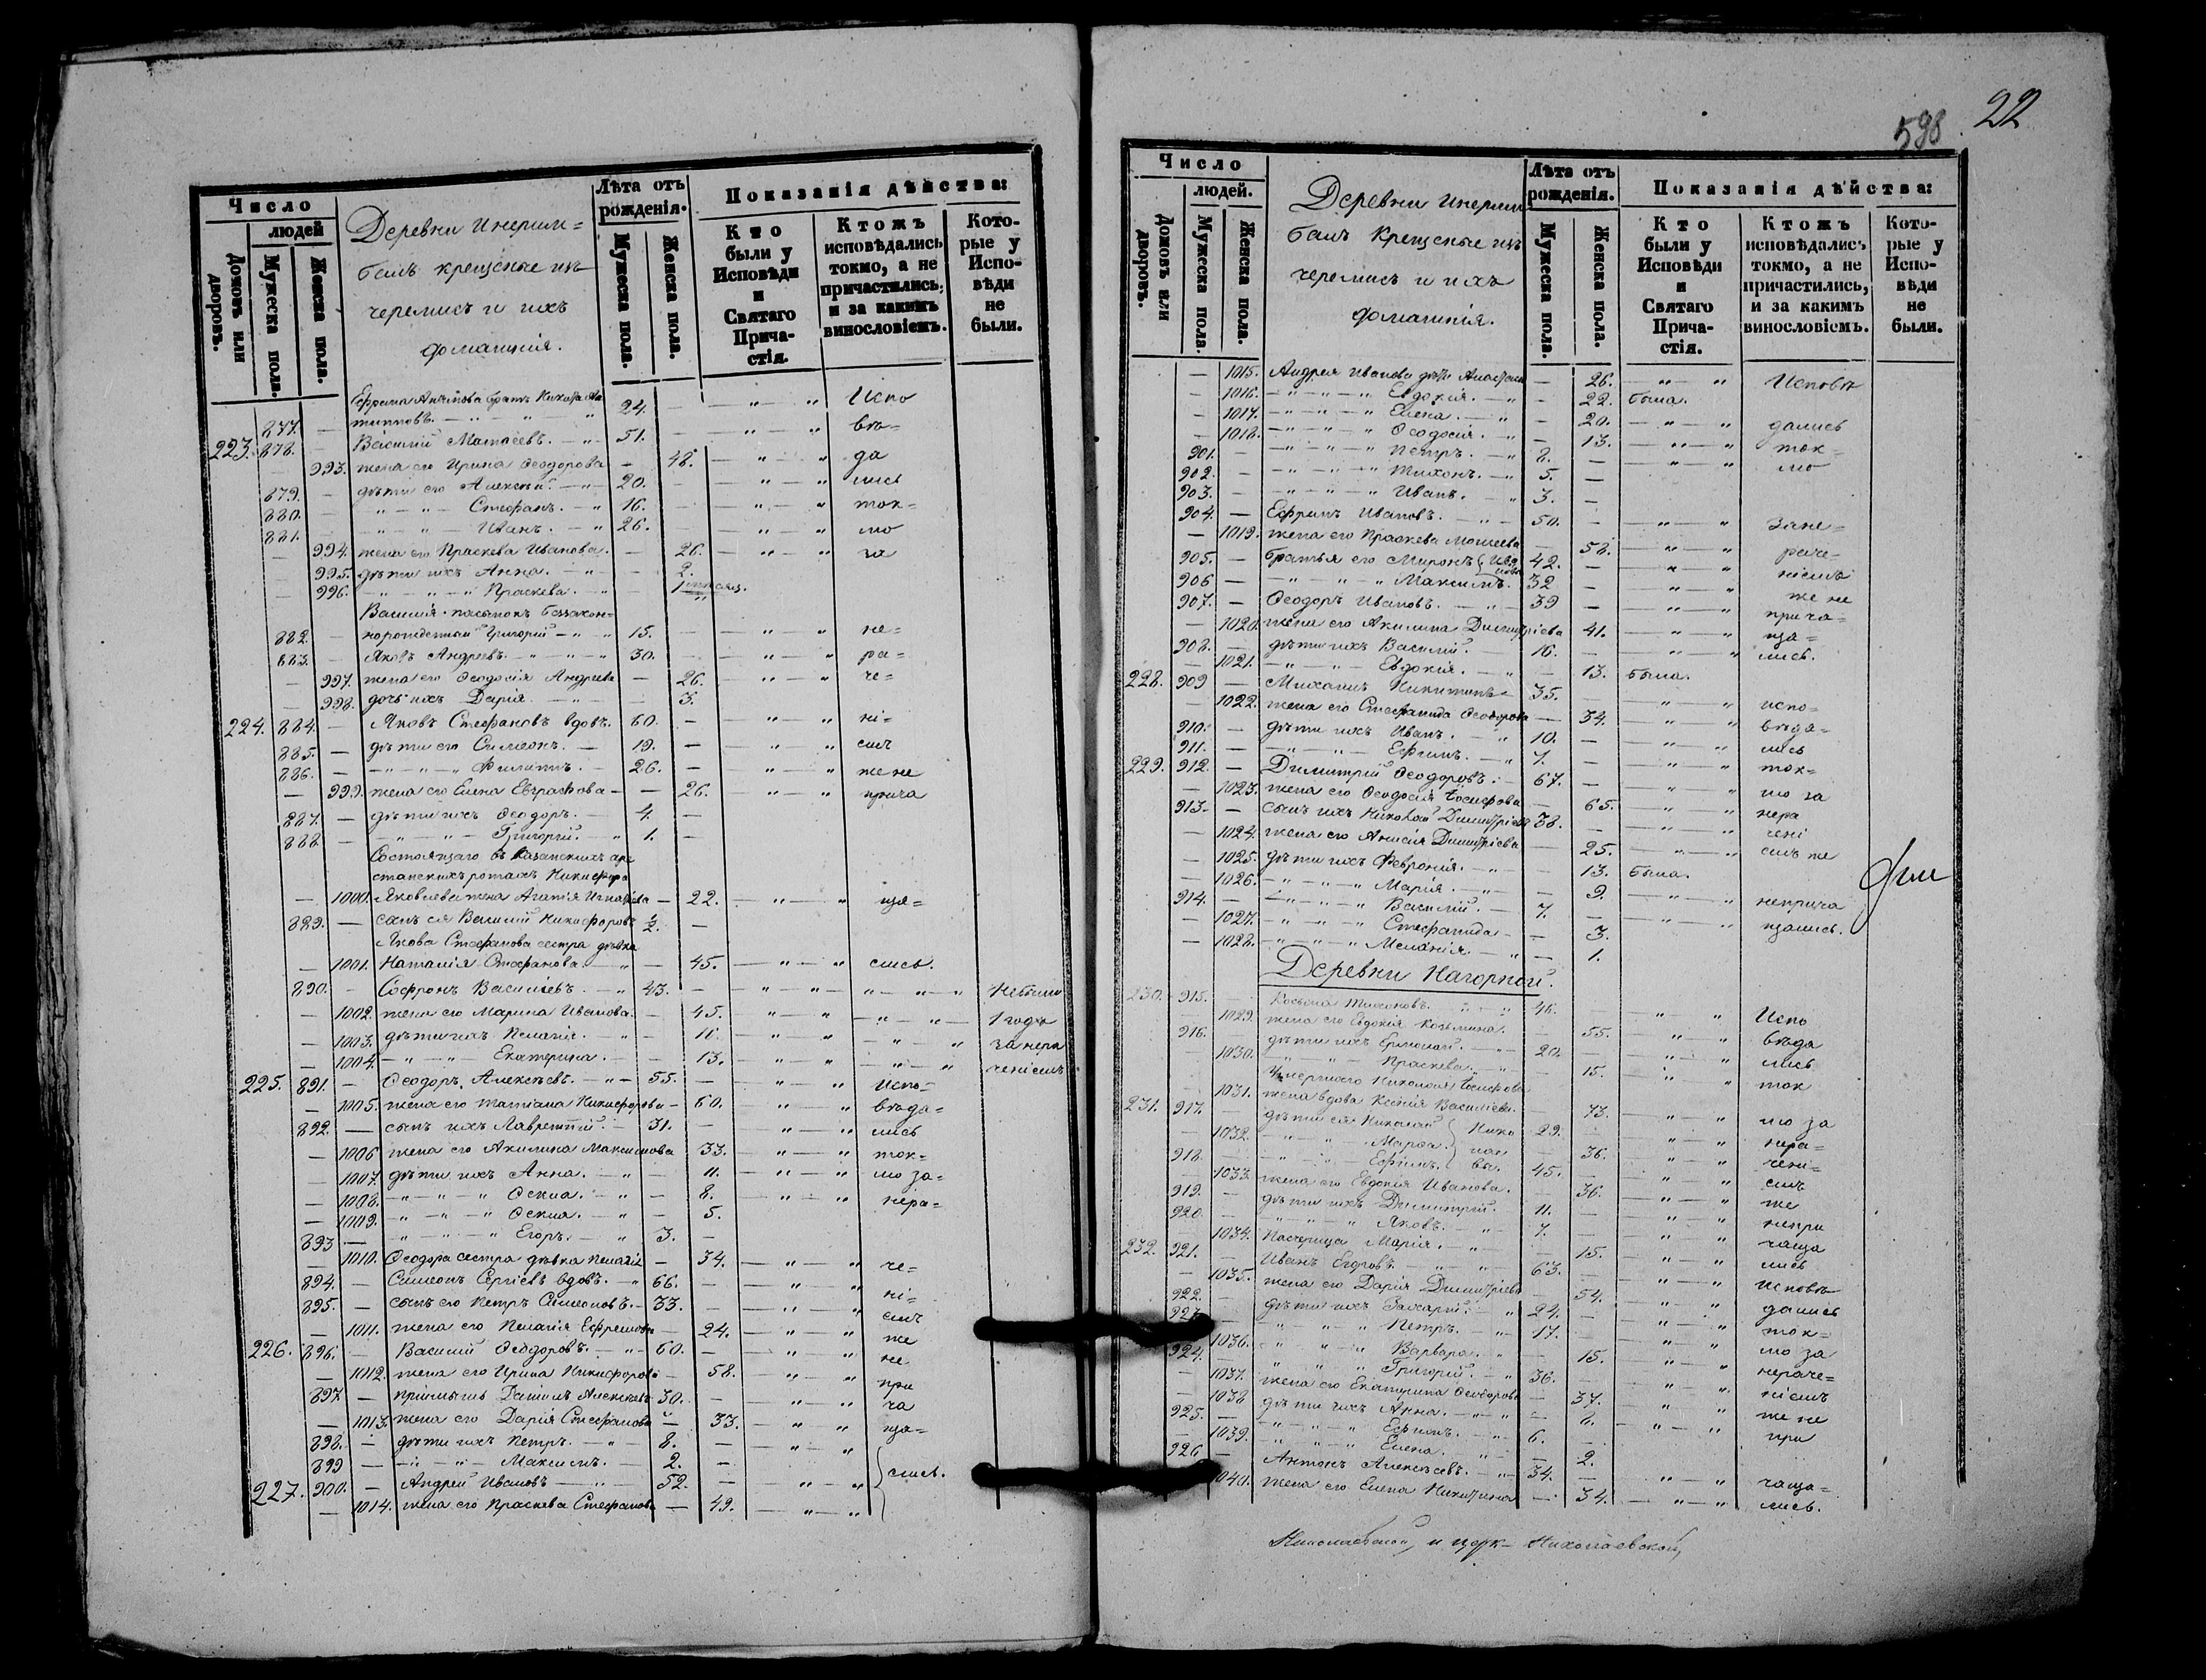 Число
людей
Домовъ или дворовъ.
Мужеска пола.
Женска пола.
Деревни Инерим=
балъ крещеные изъ
черемисъ и ихъ
домашнія.
Лѣта отъ рожденія.
Мужеска пола.
Женска пола.
Показанія дѣйства:
Кто были у Исповѣди и Святаго Причастія.
Ктожъ исповѣдались токмо, а не причастились, и за какимъ винословіемъ.
Которые у Исповѣди не были.
Ефрема Антипова братъ Ан
877. — типповъ. 24. — Испо
223. 878. — Василій Матвѣевъ. 51. — вѣ=
— 993. жена его Ирина Ѳеодорова — 48. да
879. — дѣти его Алексѣй. 20. — лись
880. — Стефанъ. 16. — ток=
881. — Иванъ. 26. — мо
— 994. жена его Праскева Иванова. — 26. за
— 995. дѣти ихъ Анна. — 2.
— 996. Праскева. — 1 мѣсяц.
Василія пасынокъ беззакон=
882. — норожденный Григорій 15. — не=
883. — Яковъ Андреевъ. 30. — ра=
— 997. жена его Ѳеодосія Андреева — 26. че=
— 998. дочь ихъ Дарія. — 3.
224. 884. — Яковъ Стефановъ вдовъ. 60. — ні=
885. — дѣти его Симеонъ. 19. — емъ
886. — Филиппъ. 26. — же не
— 999. жена его Елена Евграфова — 26. прича
887. — дѣти ихъ Ѳеодоръ. 4. —
888. — Григорій. 1. —
Состоящаго въ Казанскихъ аре
станскихъ ротахъ Никифора
— 1000. Яковлева жена Агапія Игнатьева — 22. ща=
889. — сынъ ея Василій Никифоровъ ½. —
Якова Стефанова сестра дѣвка
— 1001. Наталія Стефанова. — 45. лись.
890. — Софронъ Василіевъ. 43. — Небыли
— 1002. жена его Марина Иванова. — 45. 1 годъ
— 1003. дѣти ихъ Пелагія. — 16. за нера
— 1004. Екатерина. — 13. ченіемъ
225. 891. — Ѳеодоръ Алексѣевъ. 55. — Испо=
— 1005. жена его Татіана Никифорова — 60. вѣда=
892. — сынъ ихъ Лаврентій. 31. — лись
— 1006 жена его Акилина Максимова 33. ток=
— 1007. дѣти ихъ Анна. — 11. мо за=
— 1008. Ѳекла. — 8. нера=
— 1009. Ѳекла. — 5.
893 — Егоръ. 3. —
— 1010. Ѳеодора сестра дѣвка Пелагія — 34. че=
894. — Симеонъ Сергіевъ вдовъ. 66. — ні=
895. — сынъ его Петръ Симеоновъ. 33. — емъ
— 1011. жена его Пелагія Ефремова — 24. же
226. 896. — Василій Ѳеодоровъ. 60. — не
— 1012. жена его Ирина Никифорова — 58. при
897. — пріимышъ Даніилъ Алексѣевъ 30. — ча
— 1013. жена его Дарія Стефанова — 33. ща=
898. — дѣти ихъ Петръ. 8. —
899 — Максимъ. 2. —
227. 900. — Андрей Ивановъ 52. — лись.
— 1014. жена его Праскева Стефанова — 49.
598 22
Число
людей.
Домовъ или дворовъ.
Мужеска пола.
Женска пола.
Деревни Инерим
балъ Крещеные изъ
черемисъ и ихъ
домашнія.
Лѣта отъ рожденія.
Мужеска пола.
Женска пола.
Показанія дѣйства:
Кто были у Исповѣди и Святаго Причастія.
Ктожъ исповѣдались токмо, а не причастились, и за какимъ винословіемъ.
Которые у Исповѣди не были.
— 1015. Андрея Иванова дѣти — 26. Исповѣ
— 1016. Евдокія. — 22. была.
— 1017. Елена. — 20. дались
— 1018. Ѳеодосія. — 13. ток=
901. — Петръ. 8. — мо
902. — Тихонъ. 5. —
903. — Иванъ. 3. —
904. — Ефримъ Ивановъ. 50. — Зане=
— 1019. жена его Праскева Моисеева — 58. раче=
905. — братья его Миронъ Ива 42. — ніемъ
906 — Максимъ. новы 32 — же не
907. — Ѳеодоръ Ивановъ. 39 — прича=
— 1020. жена его Акилина Димитріева 41. ща=
908. — дѣти ихъ Василій. 16. — лись.
— 1021. Евдокія. — 13. была.
228. 909 — Михаилъ Никитинъ 35. —
— 1022. жена его Стефанида Ѳеодорова — 34. испо=
910. — дѣти ихъ Иванъ. 10. — вѣда=
911. — Ефимъ. 7. — лись
229. 912. — Димитрій Ѳеодоровъ. 67. — ток=
— 1023. жена его Ѳеодосія Іосифова — 65. мо за
913. — сынъ ихъ Николай Димитріевъ 38. — нера
— 1024. жена его Анисія Димитріева — 25. чені
— 1025. дѣти ихъ Февронія. — 13. была. емъ же
— 1026. Марія. — 9.
914. — Василій. 7. — неприча
— 1027. Стефанида — 3. щались.
— 1028. Меланія. — 1.
Деревни Нагорной.
230. 915. — Косьма Тихоновъ. 46.
— 1029. жена его Евдокія Козьмина. — 55. Испо
916. — дѣти ихъ Ермолай. 20. — вѣда
— 1030. Праскева. — 15. лись
Умершаго Николая Іосифова ток
— 1031. жена вдова Ксенія Василіева. — 73.
231. 917. — дѣти ея Николай Нико 29. мо за
— 1032. Марѳа. лае — 36. нера=
918. — Ефимъ. вы. 45. чені=
— 1033. жена его Евдокія Иванова. — 36. емъ
919. — дѣти ихъ Димитрій. 11. — же
920. — Яковъ. 7. — непри
— 1034. Падчерица Марія. — 15. чаща
232. 921. — Иванъ Егоровъ. 63. — лись
— 1035. жена его Дарія Димитріева — 54. исповѣ
922. — дѣти ихъ Захарій. 24. — дались
923. — Петръ. 17. — ток=
— 1036. Варвара. — 15. мо за
924. — Григорій. 36. — нераче=
— 1037. жена его Екатерина Ѳеодорова — 37. ніемъ
— 1038 дѣти ихъ Анна. — 8. же не
925. — Ефимъ. 6. — при
— 1039. Елена. — 2.
926 — Антонъ Алексѣевъ. 34. — чаща=
— 1040. жена его Елена Никитина — 34. лись.
и церк= Николаевской,